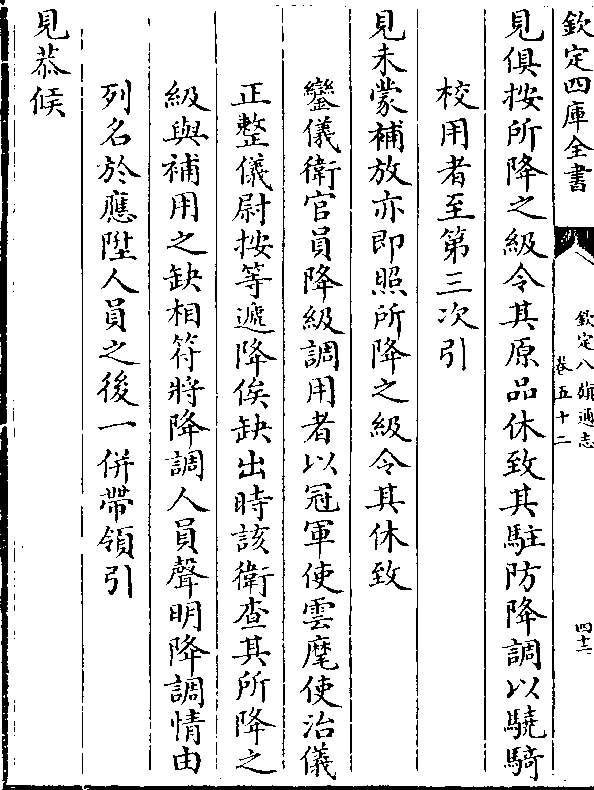 欽定四庫全書
欽定八旗通志
卷五十二
四十二
見俱按所降之級令其原品休致其駐防降調以驍騎
校用者至第三次引
見未蒙補放亦即照所降之級令其休致
鑾儀衛官員降級調用者以冠軍使雲麾使治儀
正整儀尉按等遞降俟缺出時該衛查其所降之
級與補用之缺相符將降調人員聲明降調情由
列名於應陞人員之後一併帶領引
見恭候